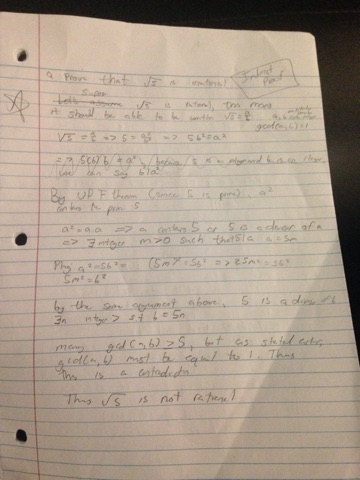 a. Prove that √5 is irrational
Indirect Proof
Suppose
Let's assume √5 is rational, this means
it should be able to be written √5 = a/b
gcd(a,b)=1
√5 = a/b => 5 = a²/b² => 5b² = a²
=> 5(b)(b) = a²
we can say b²|a²
By UPF theorem (since 5 is prime), a²
contains the prime 5
a² = a·a => a contains 5 or 5 is a divisor of a
=> ∃ integer m>0 such that 5|a a = 5m
Plug a² = 5b² = (5m)² = 5b² => 25m² = 5b²
5m² = b²
by the same argument above, 5 is a divisor of b
∃n integer > s.t b = 5n
gcd(a,b) > 5, but as stated earlier,
gcd(a,b) must be equal to 1. Thus
this is a contradiction
Thus √5 is not rational